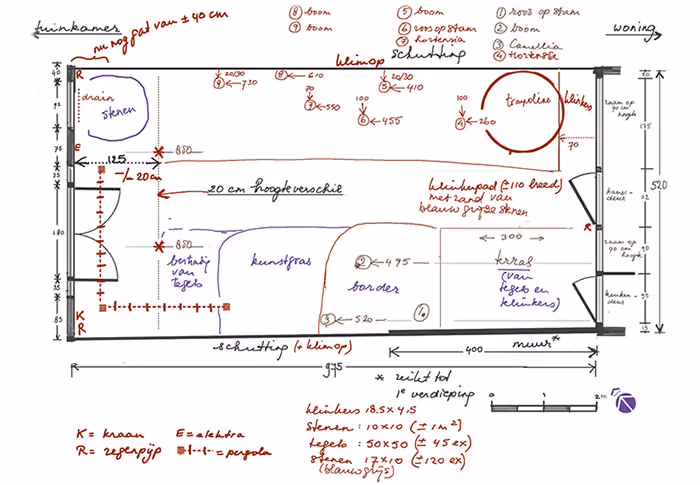 tuinkamer
nu nog gat van ± 40 cm
⑧ boom
⑨ boom
⑤ boom
⑥ roos op stam
⑦ hortensia
① roos op stam
② boom
③ Camellia
④ Hortensia
woning
klimop
schutting
R
drain
stenen
20/30
⑨ ← 730
⑧ ← 610
20/30
⑤ ← 410
70
⑦ ← 550
100
⑥ ← 455
100
④ ← 260
trampoline
klinkers
70
E
125
850
-/- 20cm
20 cm hoogteverschil
klinkerpad (± 110 breed)
met zand van
blauw grijze stenen
850
R
300
bestrating
van
tegels
kunstgras
② ← 495
border
terras
(van
tegels en
klinkers)
③ ← 520
①
K
R
40
92
75
35
180
35
85
raam op
90 cm
hoogte
175
92
520
raam op
90 cm
hoogte
keuken-
deur
95
15
schutting (+ klimop)
400
muur*
975
* reikt tot
1e verdieping
0 1 2m
K = kraan
E = elektra
R = regenpijp
= pergola
klinkers 18.5 x 4,5
stenen : 10x10 (± 1m²)
tegels : 50x50 (± 45 ex)
stenen 17x10 (± 120 ex)
(blauwgrijs)